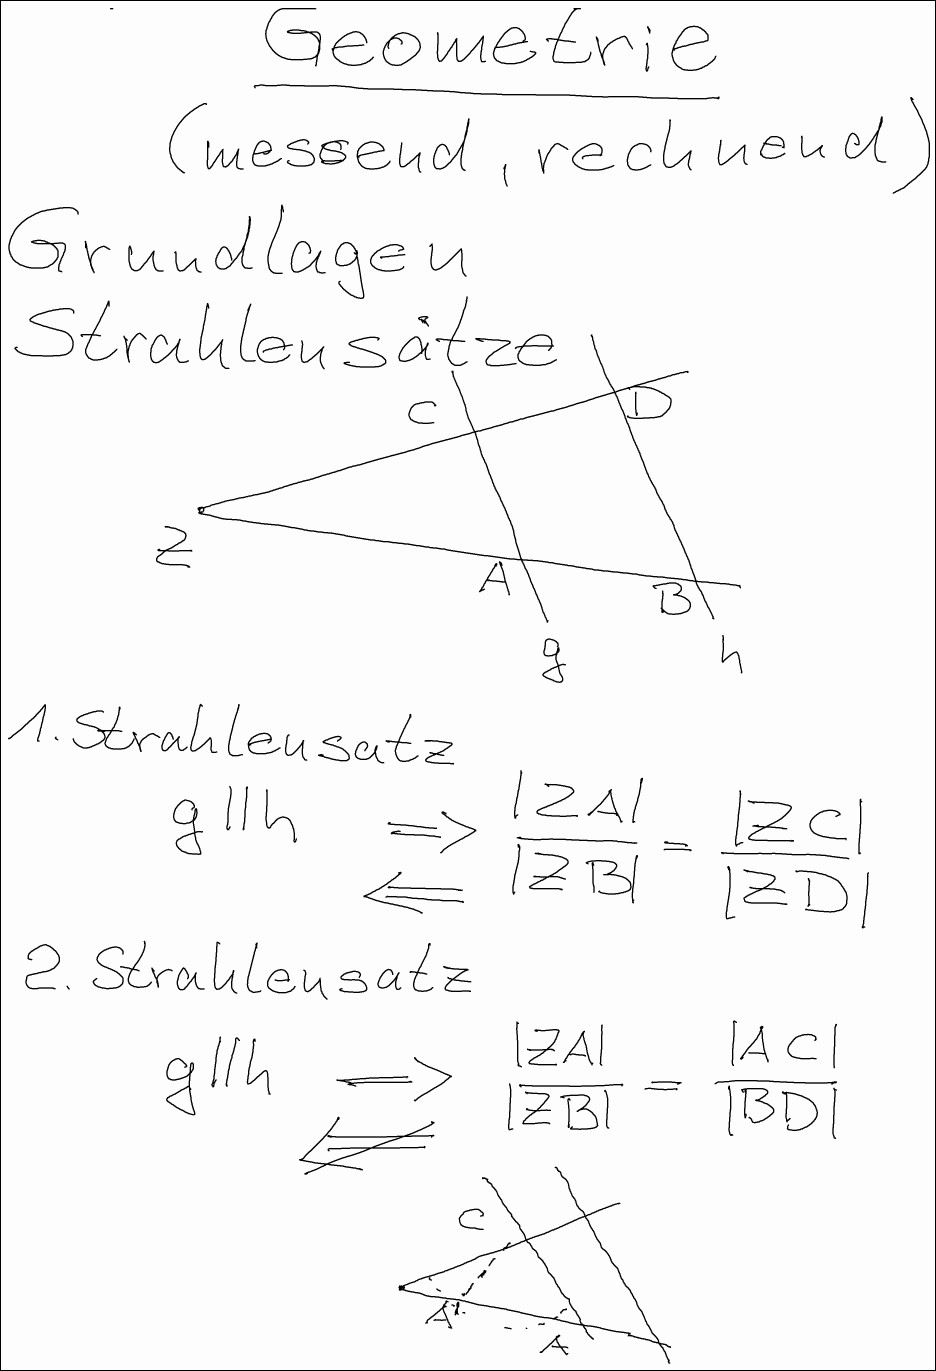 Geometrie
(messend, rechnend)
Grundlagen
Strahlensätze
C D
Z
A B
g h
1. Strahlensatz
g||h ⇒ |ZA|/|ZB| = |ZC|/|ZD|
⇐
2. Strahlensatz
g||h ⇒ |ZA|/|ZB| = |AC|/|BD|
⇐
C
A'
A